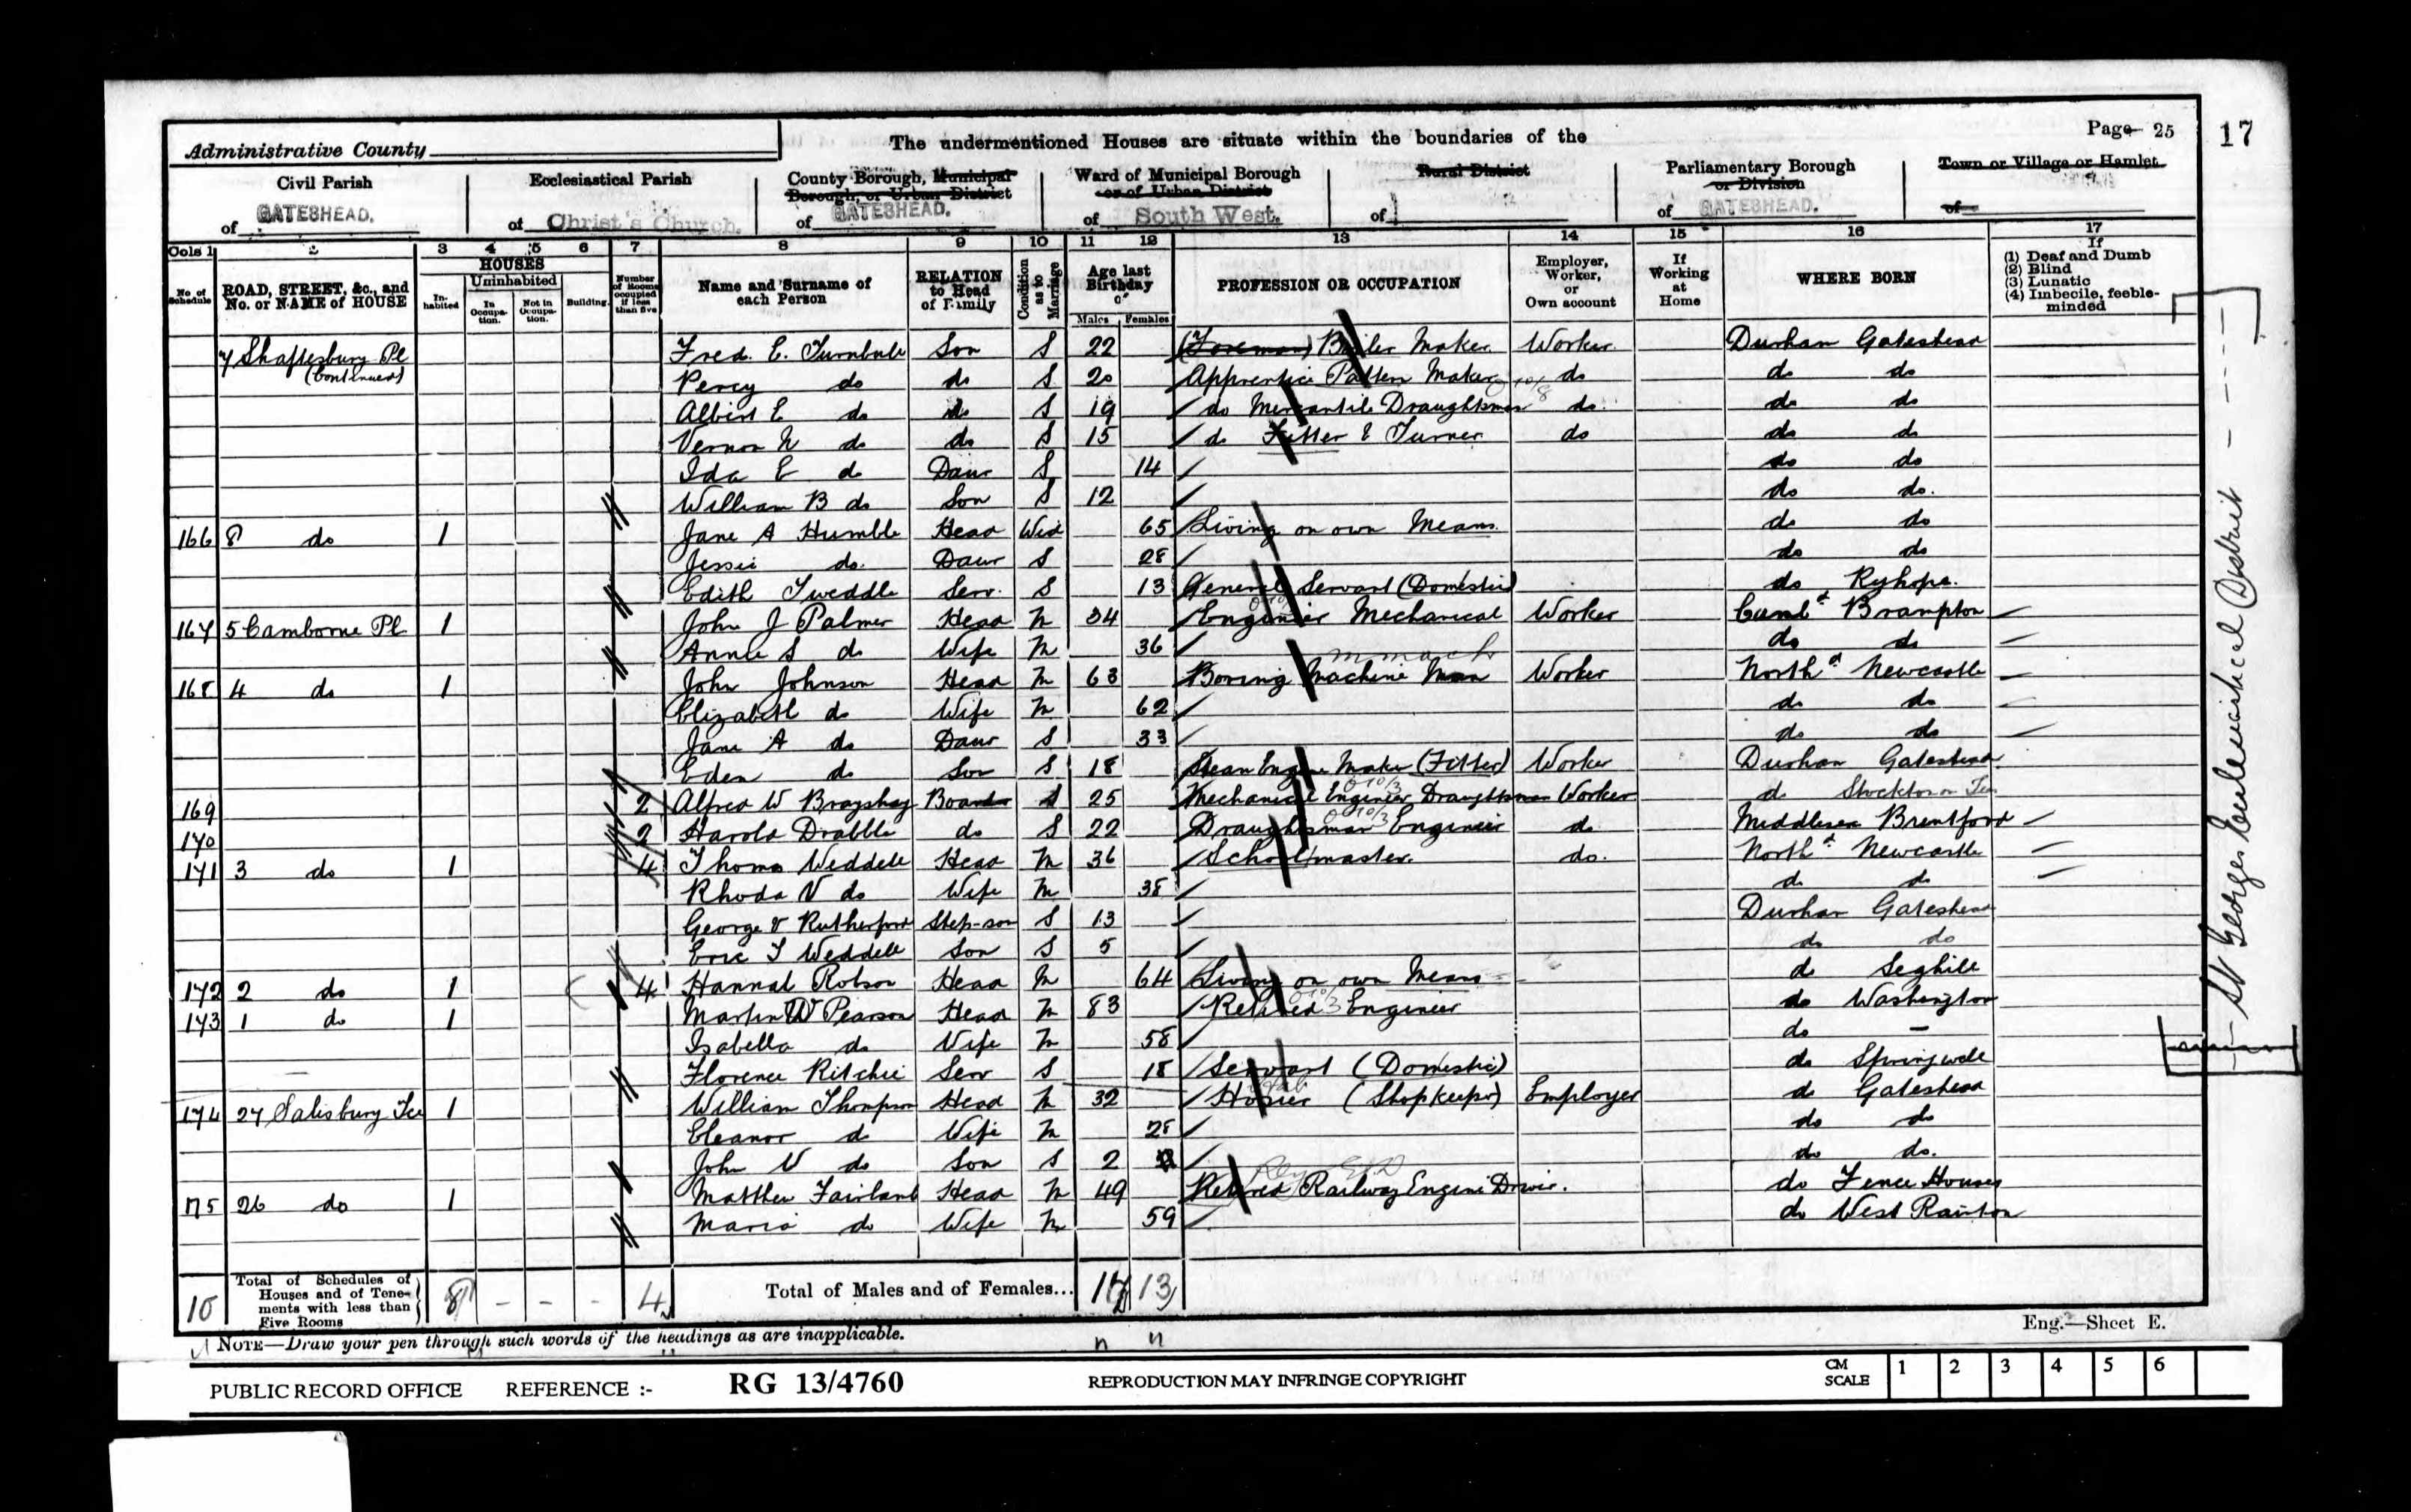 Page 25
17
Administrative County
The undermentioned Houses are situate within the boundaries of the
Civil Parish
of GATESHEAD.
Ecclesiastical Parish
of Christ's Church.
County Borough, Municipal
Borough, or Urban District
of GATESHEAD.
Ward of Municipal Borough
or of Urban District
of South West.
Rural District
of
Parliamentary Borough
or Division
of GATESHEAD.
Town or Village or Hamlet
of
Cols 1 2 3 4 5 6 7 8 9 10 11 12 13 14 15 16 17
No. of Schedule
ROAD, STREET, &c., and No. or NAME of HOUSE
HOUSES
Inhabited
Uninhabited
In Occupation.
Not in Occupation.
Building.
Number of Rooms occupied if less than five
Name and Surname of each Person
RELATION to Head of Family
Condition as to Marriage
Age last Birthday of
Males Females
PROFESSION OR OCCUPATION
Employer, Worker, or Own account
If Working at Home
WHERE BORN
If
(1) Deaf and Dumb
(2) Blind
(3) Lunatic
(4) Imbecile, feeble-minded
7 Shaftesbury Pl Fred. E. Turnbull Son S 22 (Foreman) Boiler Maker Worker Durham Gateshead
(Continued) Percy do do S 20 Apprentice Pattern Maker do do do
Albert E do do S 19 do Mercantile Draughtsman do. do do
Vernon N do do S 15 do Fitter & Turner do do do
Ida E do Daur S 14 do do
William B do Son S 12 do do.
166 8 do 1 Jane A Humble Head Wid 65 Living on own Means. do do
Jessie do. Daur S 28 do do
Edith Tweddle Serv. S 13 General Servant (Domestic) do Ryhope.
167 5 Camborne Pl 1 John J Palmer Head M 34 Engineer Mechanical Worker Cumbd Brampton
Annie S do Wife M 36 do do
168 4 do 1 John Johnson Head M 63 Boring Machine Man Worker Northd Newcastle
Elizabeth do Wife M 62 do do
Jane A do Daur S 33 do do
Eden do Son S 18 Steam Engine Maker (Fitter) Worker Durham Gateshead.
169 2 Alfred W Brayshay Boarder S 25 Mechanical Engineer Draughtsman Worker do Stockton on Tees
170 2 Harold Drabble do S 22 Draughtsman Engineer do Middlesex Brentford
171 3 do 1 4 Thomas Weddell Head M 36 Schoolmaster. do. Northd Newcastle
Rhoda V do Wife M 38 do do
George V Rutherford Step-son S 13 Durham Gateshead
Eric T Weddell Son S 5 do do
172 2 do 1 4 Hannah Robson Head M 64 Living on own Means do Seghill
173 1 do 1 Martin W Pearson Head M 83 Retired Engineer do Washington
Isabella do Wife M 58 do —
Florence Ritchie Serv S 18 Servant (Domestic) do Springwell
174 27 Salisbury Tce 1 William Thompson Head M 32 Hosier (Shopkeeper) Employer do Gateshead
Eleanor do Wife M 28 do do
John V do Son S 2 do do.
175 26 do 1 Matthew Fairlamb Head M 49 Retired Railway Engine Driver. do Fence Houses
Maria do Wife M 59 do West Rainton
10 Total of Schedules of Houses and of Tenements with less than Five Rooms 8 - - - 4 Total of Males and of Females... 17 13
Eng.—Sheet E.
NOTE—Draw your pen through such words of the headings as are inapplicable.
St Georges Ecclesiastical District
PUBLIC RECORD OFFICE REFERENCE :- RG 13/4760 REPRODUCTION MAY INFRINGE COPYRIGHT
CM SCALE 1 2 3 4 5 6